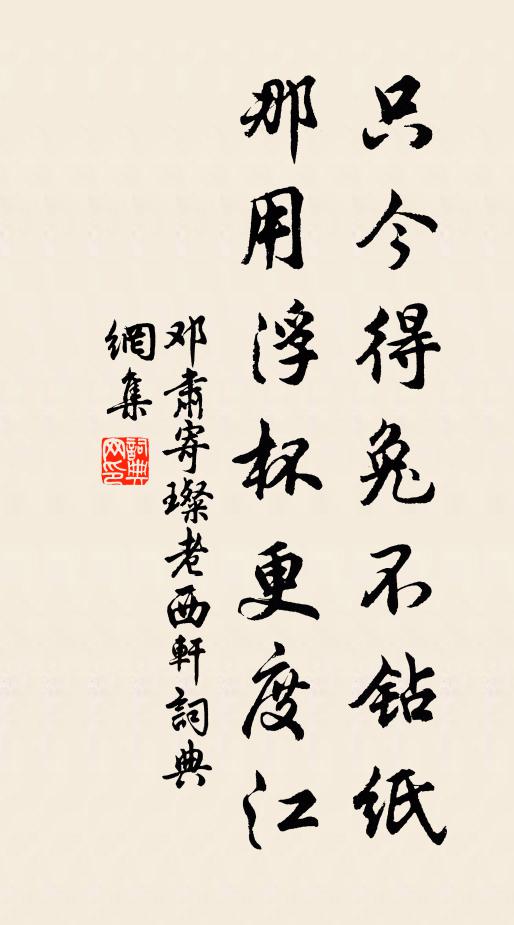 只今得兔不钻纸
那用浮杯更度江
邓肃寄璨老西軒詞典
網集
詞典网印